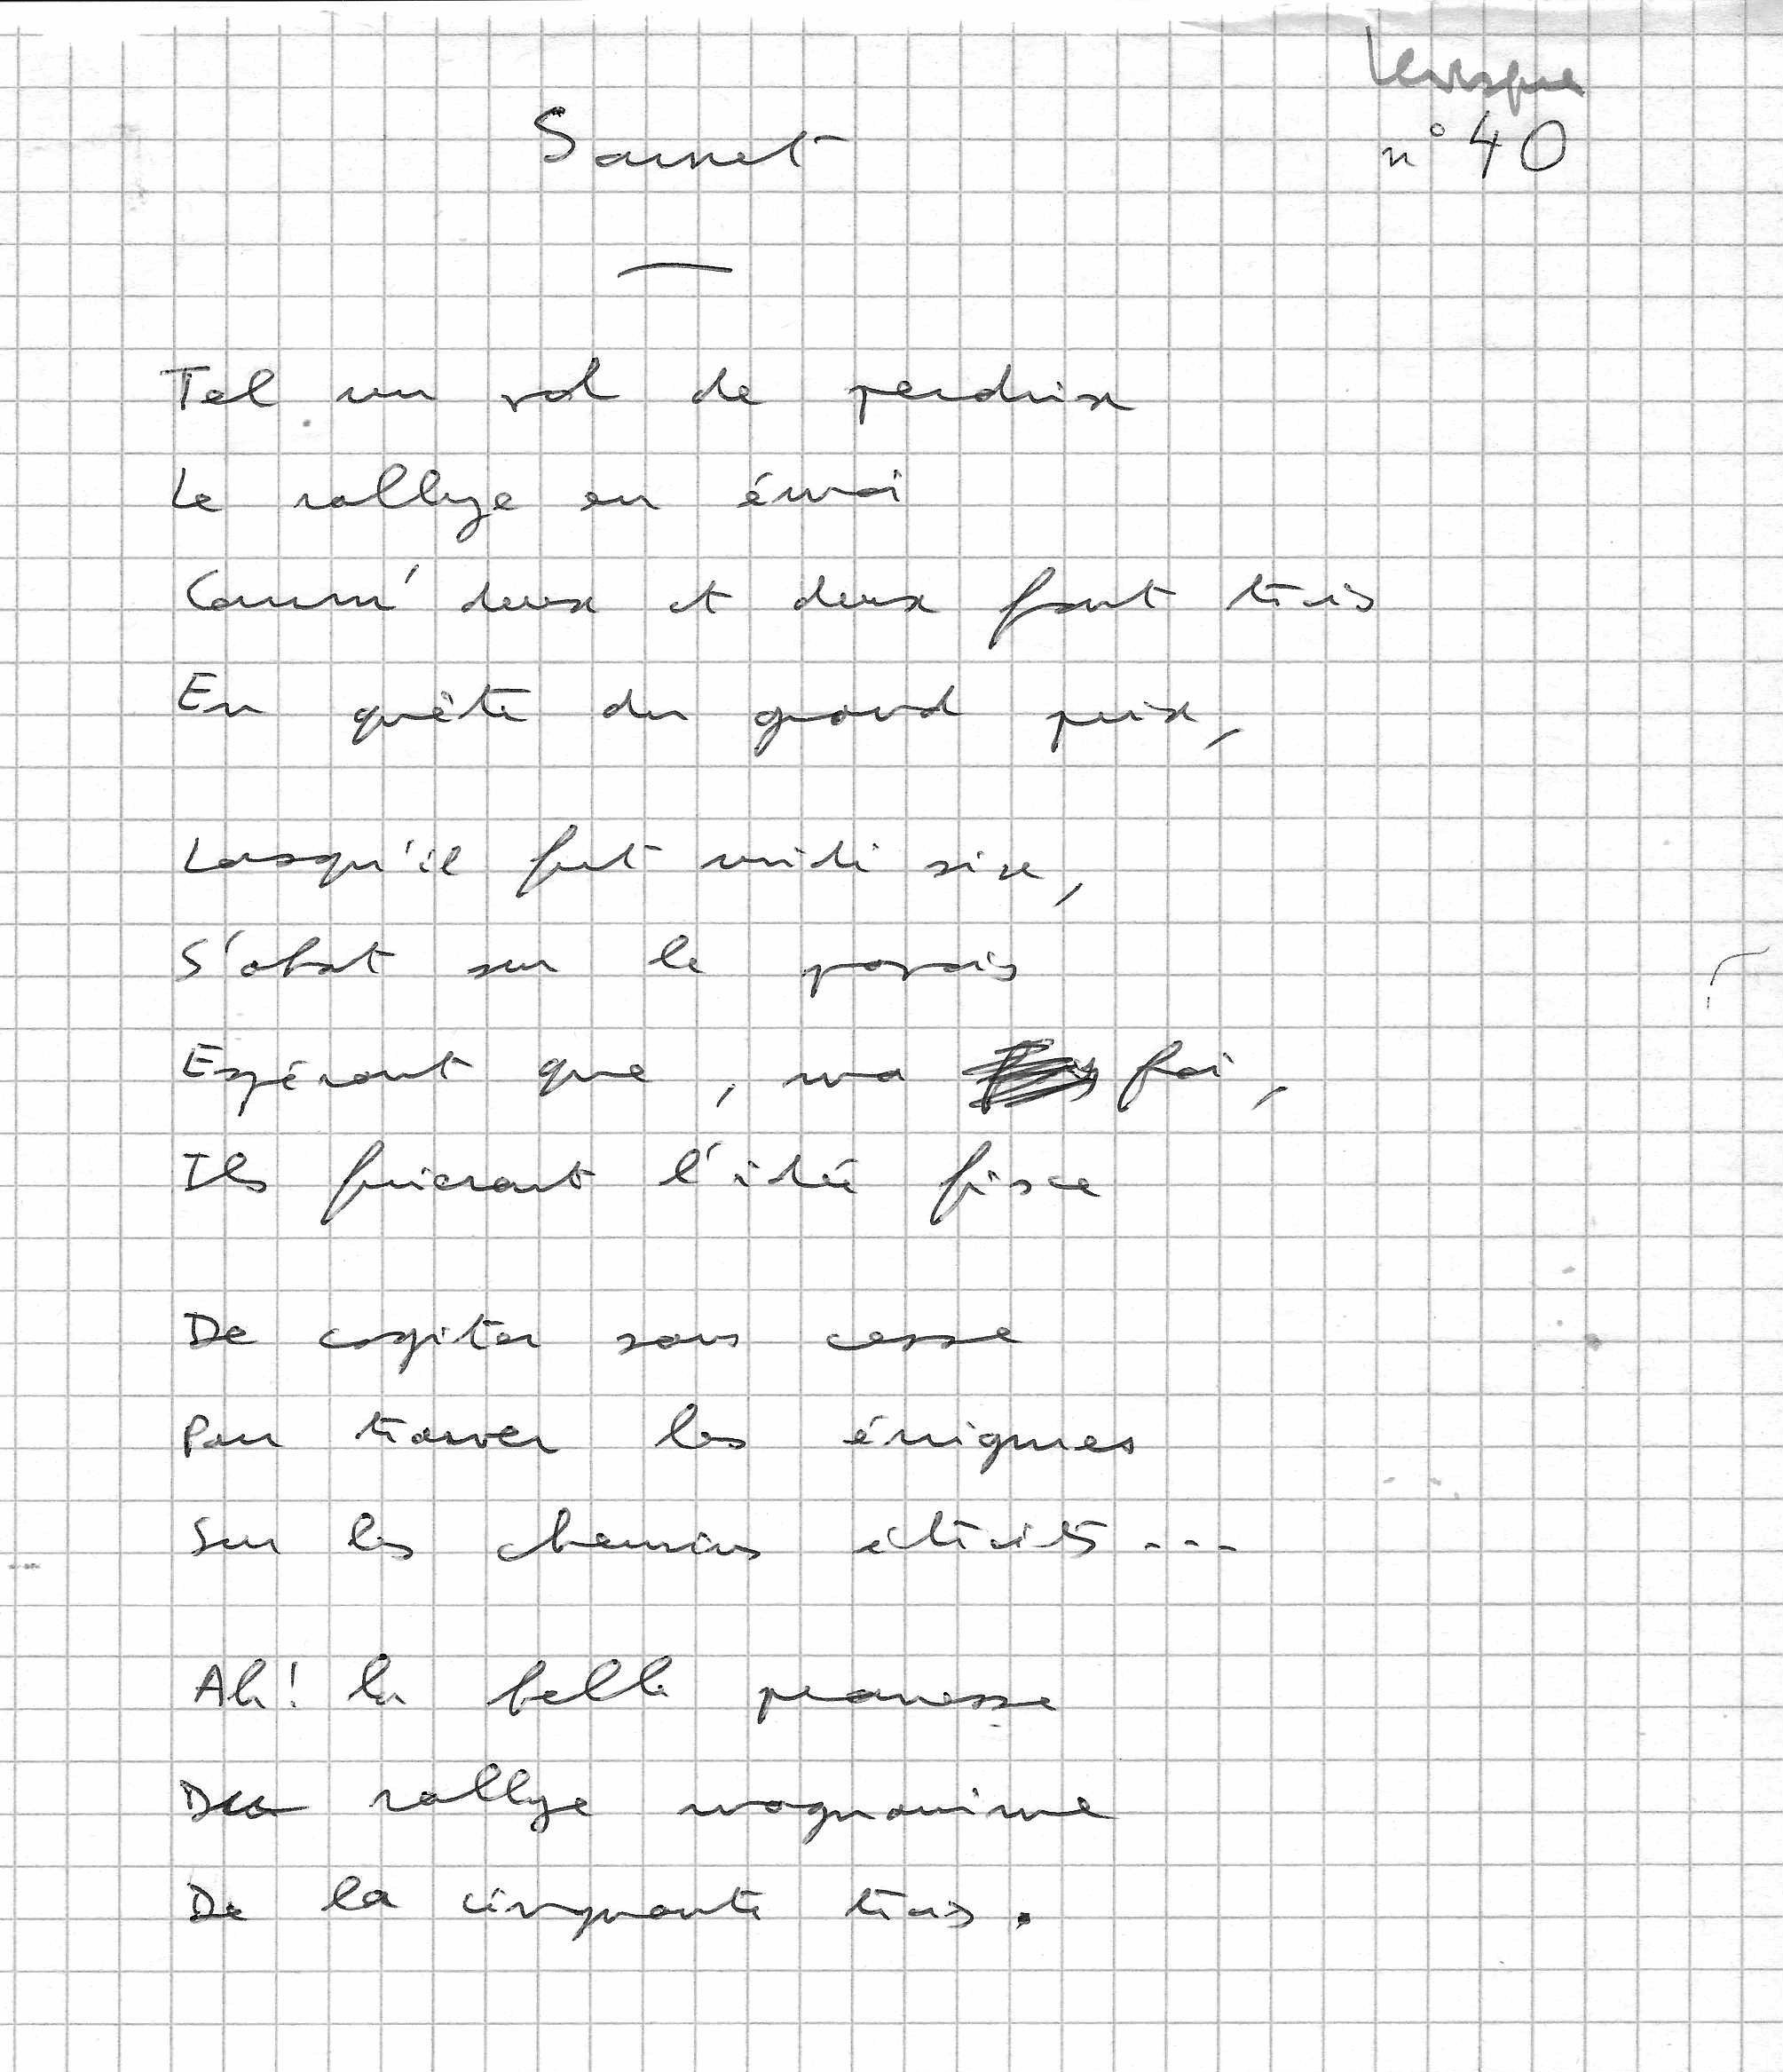 n° 40
Sonnet
Tel un vol de perdrix
Le rallye en émoi
Comm' deux et deux font trois
En quête du grand prix,
Lorsqu'il fut midi six,
S'abat sur le parvis
Espérant que, ma foi,
Ils fuieront l'idée fixe
De cogiter sans cesse
Pour trouver les énigmes
Sur les chemins étroits...
Ah! la belle promesse
Du rallye magnanime
De la cinquante trois.